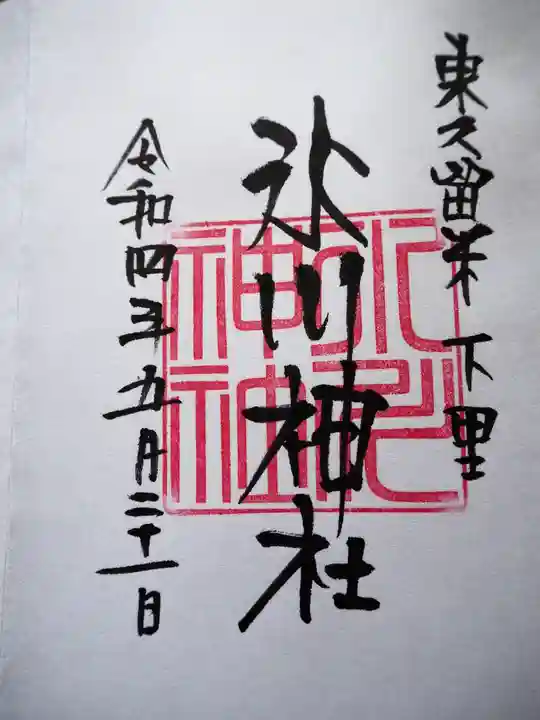 東久留米下里
氷川神社
令和四年五月二十一日